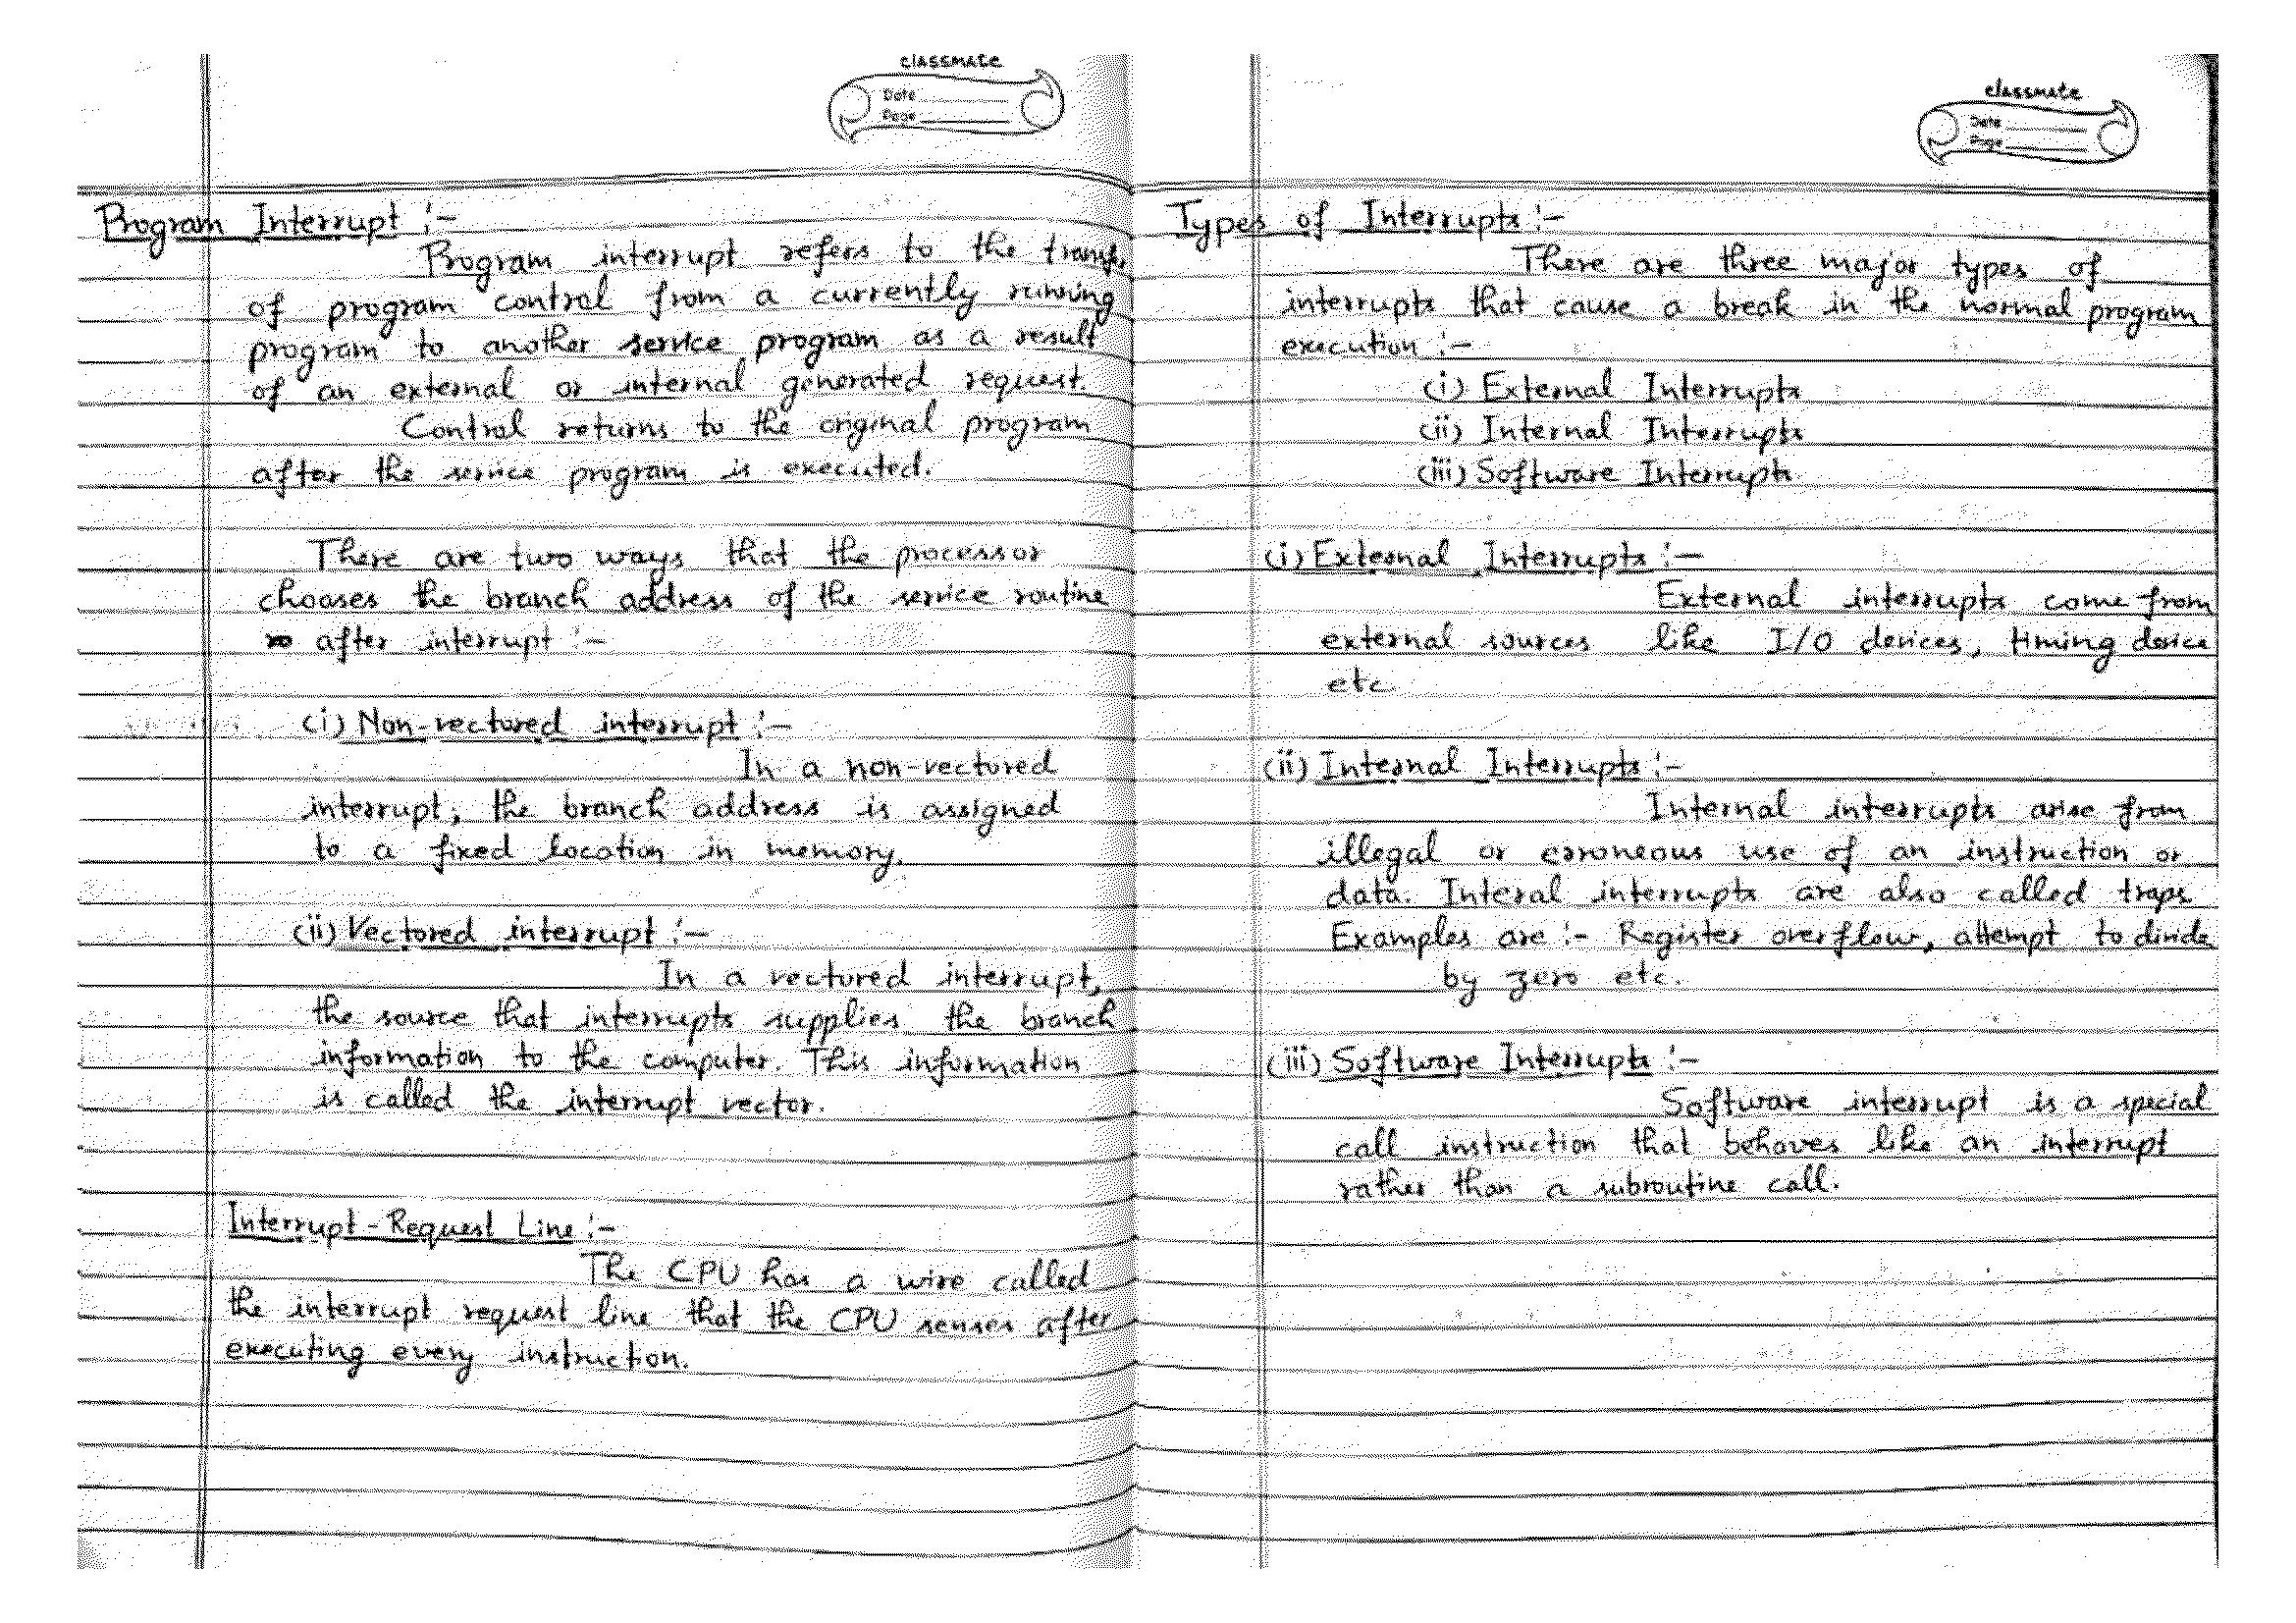 classmate
Date
Page
Program Interrupt :-
Program interrupt refers to the transfer
of program control from a currently running
program to another service program as a result
of an external or internal generated request.
Control returns to the original program
after the service program is executed.
There are two ways that the processor
chooses the branch address of the service routine
after interrupt :-
(i) Non-vectured interrupt :-
In a non-vectured
interrupt, the branch address is assigned
to a fixed location in memory.
(ii) Vectored interrupt :-
In a vectured interrupt,
the source that interrupts supplies the branch
information to the computer. This information
is called the interrupt vector.
Interrupt-Request Line :-
The CPU has a wire called
the interrupt request line that the CPU senses after
executing every instruction.
classmate
Date
Page
Types of Interrupts :-
There are three major types of
interrupts that cause a break in the normal program
execution :-
(i) External Interrupts
(ii) Internal Interrupts
(iii) Software Interrupts
(i) External Interrupts :-
External interrupts come from
external sources like I/O devices, timing device
etc.
(ii) Internal Interrupts :-
Internal interrupts arise from
illegal or erroneous use of an instruction or
data. Interal interrupts are also called traps.
Examples are :- Register overflow, attempt to divide
by zero etc.
(iii) Software Interrupts :-
Software interrupt is a special
call instruction that behoves like an interrupt
rather than a subroutine call.